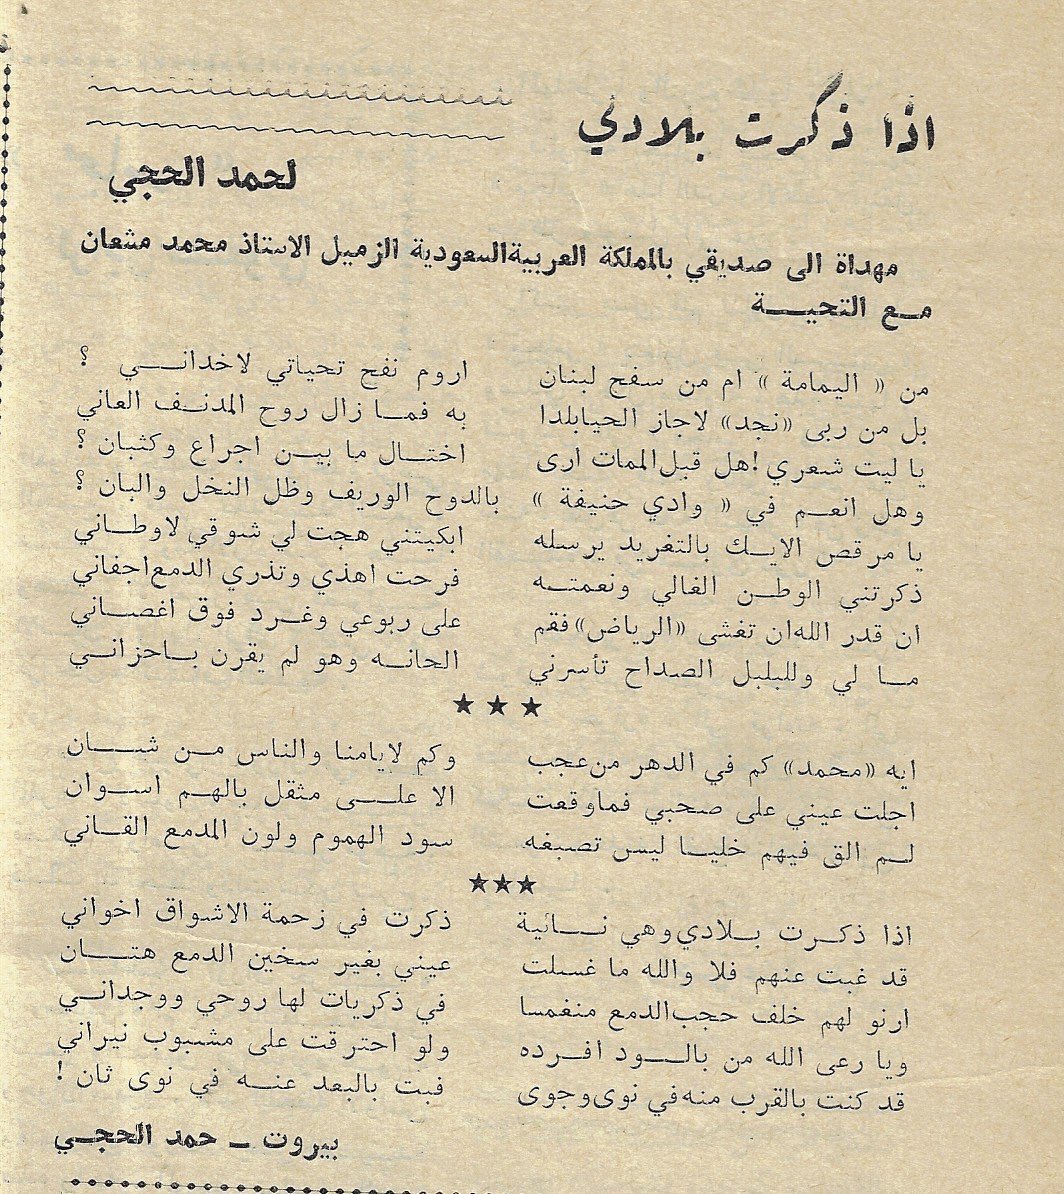 اذا ذكرت بلادي
لحمد الحجي
مهداة الى صديقي بالمملكة العربية السعودية الزميل الاستاذ محمد مشعان
مع التحيـــة
من « اليمامة » ام من سفح لبنان اروم نفح تحياتي لاخدانـــي ؟
بل من ربى «نجد» لاجاز الحيابلدا به فمـا زال روح المدنـف العاني
يا ليت شعري! هل قبل الممات ارى اختــال ما بيـن اجراع وكثبان ؟
وهل انعــم في « وادي حنيفة » بالدوح الوريف وظل النخل والبان ؟
يا مرقص الايـك بالتغريد يرسله ابكيتني هجت لي شوقي لاوطـاني
ذكرتني الوطـن الغالي ونعمتــه فرحت اهذي وتذري الدمع اجفاني
ان قدر الله ان تغشى «الرياض» فقم على ربوعي وغـرد فوق اغصـاني
مـا لي وللبلبل الصداح تأسرني الحانــه وهو لم يقرن بـاحزانـي
★ ★ ★
ايه «محمد» كم في الدهر من عجب وكم لايامنا والناس مـن شــان
اجلت عيني على صحبي فما وقعت الا علــى مثقل بالهـم اسـوان
لـم الق فيهم خليـا ليس تصبغه سود الهموم ولون المدمع القـاني
★★★
اذا ذكـرت بـلادي وهي نــائية ذكرت في زحمة الاشواق اخواني
قد غبت عنهم فلا والله ما غسلت عيني بغير سخين الدمع هتــان
ارنو لهم خلف حجب الدمع منغمسا في ذكريات لها روحي ووجدانـي
ويا رعى الله من بالــود افـرده ولو احترقت على مشبوب نيراني
قد كنت بالقرب منه في نوى وجوى فبت بالبعد عنــه في نوى ثان !
بيروت ـ حمد الحجـي